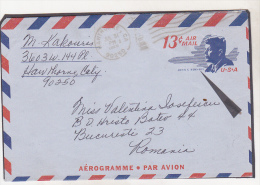 M. Kakouris
3603 W. 144 Pl
Hawthorne, Caly
90250
13¢ AIR MAIL
U·S·A
Miss Valentina Iosifescu
B.D Hristo Botev
Bucuresti 23
Romania
AÉROGRAMME • PAR AVION